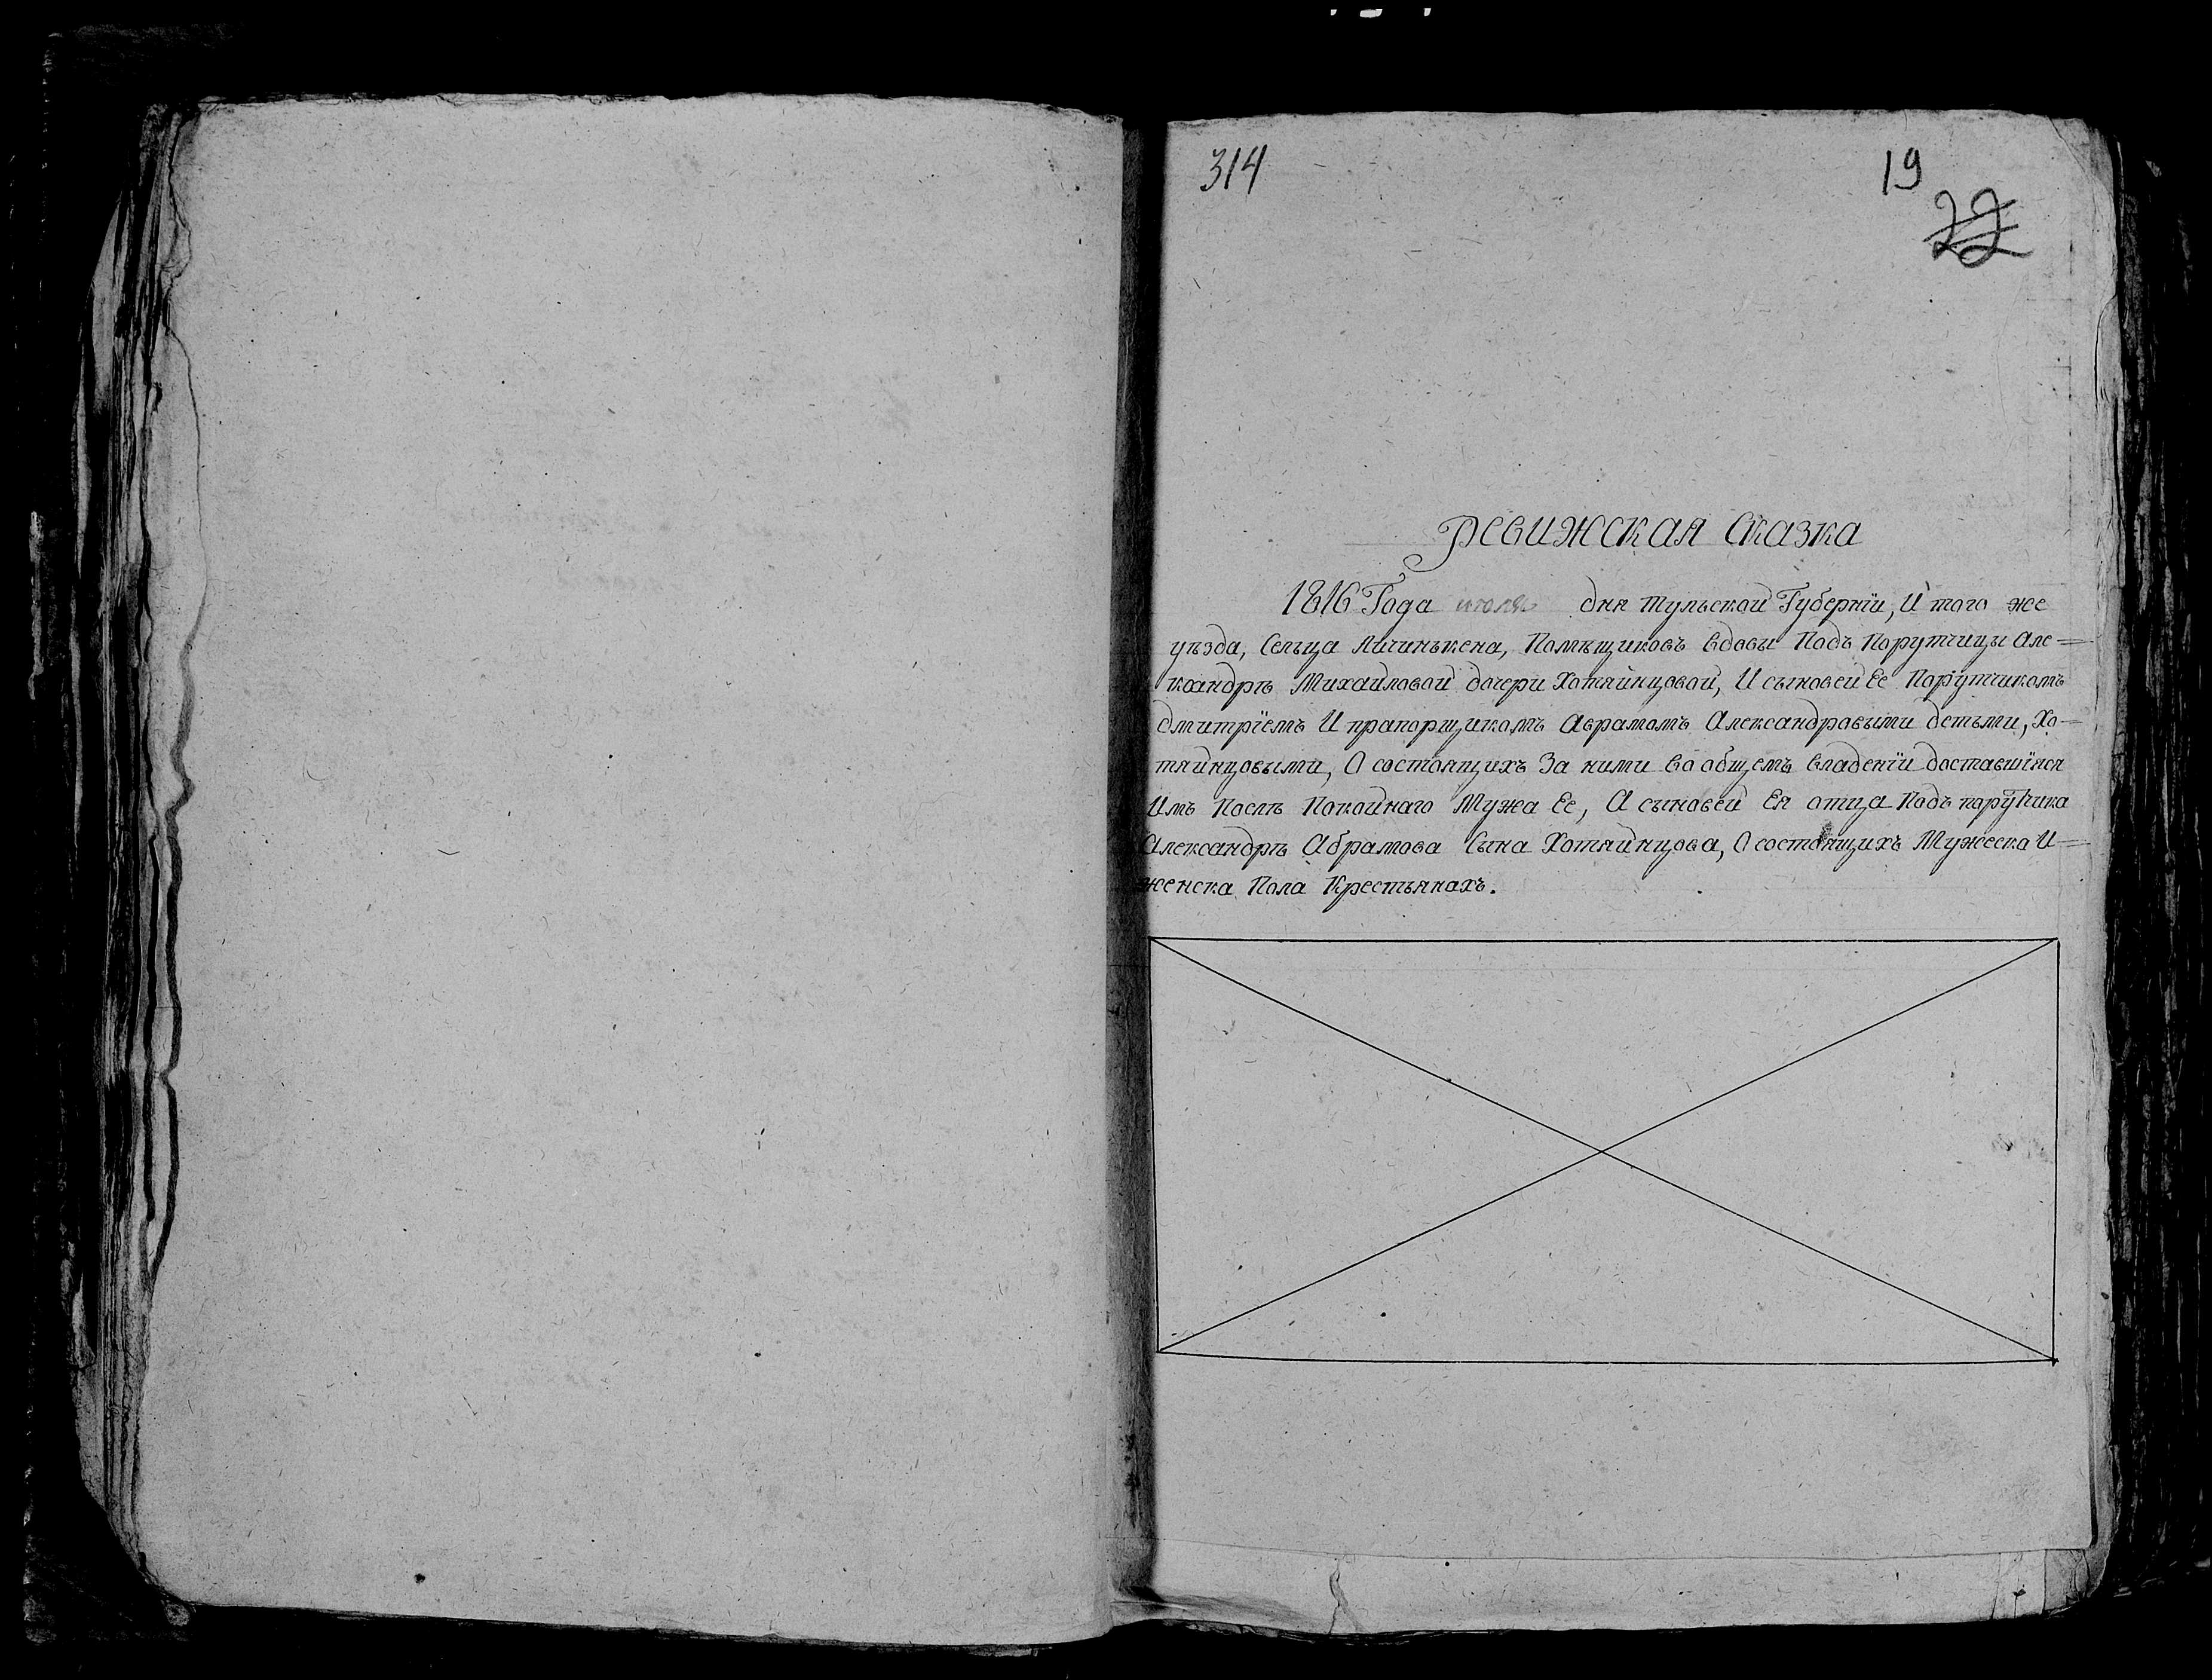 314
19
22
Ревижская сказка
1816 Года июля дня Тульской Губернїи, И того же
уѣзда, Сельца Личинькена, Помѣщиковъ вдовы Подъ Порутчицы Але=
ксандрѣ Михаиловой дочери Хотяинцовой, И сыновей Ее Порутчикомъ
дмитрїемъ И прапорщикомъ Аврамомъ Александровыми детьми, Хо-
тяинцовыми, О состоящихъ За ними во общемъ владенїи доставшїися
Имъ Послѣ Покойнаго Мужа Ее, А сыновей Ея отца Подъ порутчика
Александрѣ Абрамова Сына Хотяинцова, О состоящихъ Мужеска И=
женска Пола Крестьянахъ.